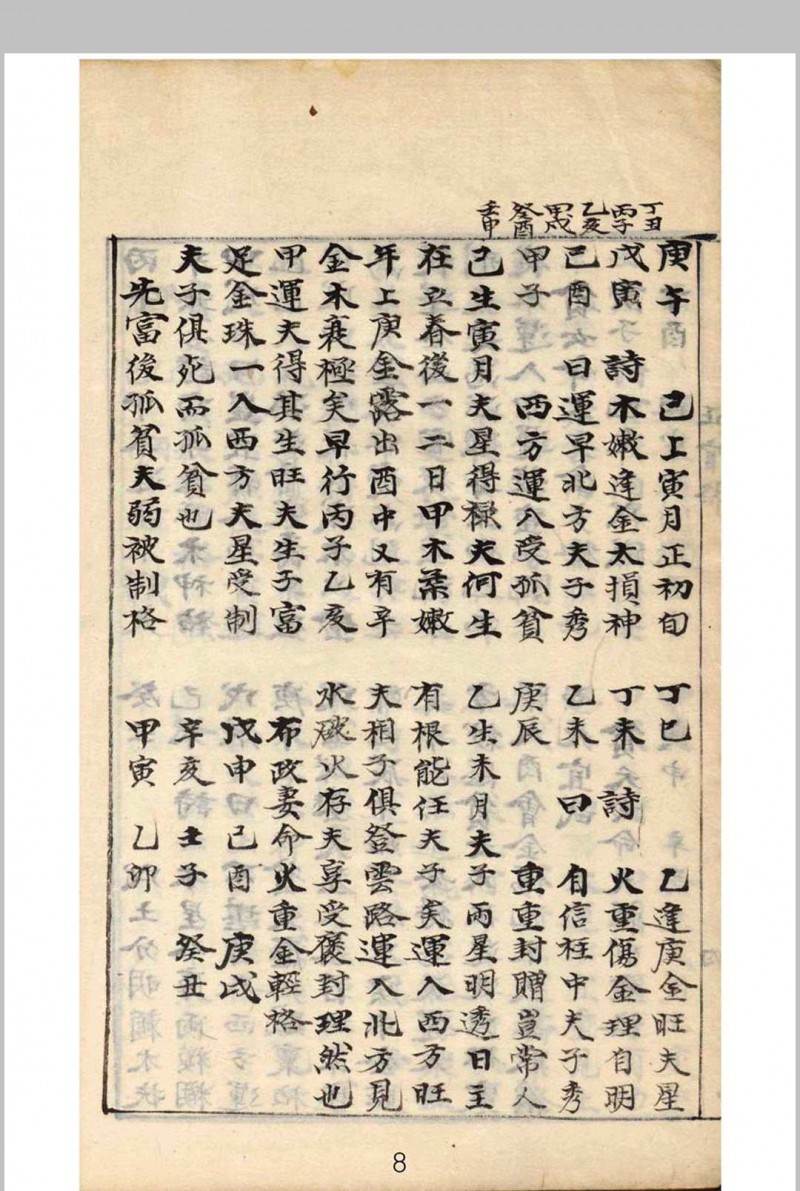 丁丑 丙子 乙亥 甲戌 癸酉 壬申
庚午 己上寅月正初旬
戊寅 詩 木嫩逢金太損神
己酉 曰 運早北方夫子秀
甲子 西方運入受孤貧
己生寅月夫星得祿夫何生
在立春後一二日甲木柔嫩
年上庚金露出酉中又有辛
金木衰極矣早行丙子乙亥
甲運夫得其生旺夫生子富
足金珠一入西方夫星受制
夫子俱死而孤貧也
先富後孤貧夫弱被制格
丁巳 乙逢庚金旺夫星
丁未 詩 火重傷金理自明
乙未 曰 自信柱中夫子秀
庚辰 重重封贈豈常人
乙生未月夫子兩星明透日主
有根能任夫子矣運入西方旺
夫相子俱登雲路運入北方見
水破火存夫享受褒封理然也
布政妻命火重金輕格
戊申 己酉 庚戌
辛亥 壬子 癸丑
甲寅 乙卯
8